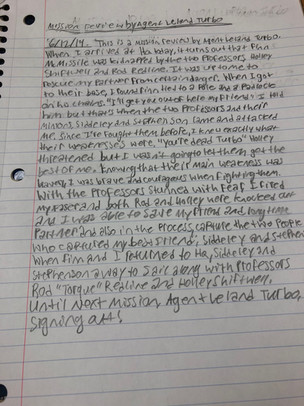 Mission review by Agent Leland Turbo
6/12/14. This is a mission review by Agent Leland Turbo.
When I arrived at Hq today, it turns out that Finn
McMissile was kidnapped by the two Professors Holley
Shiftwell and Rod Redline. It was up to me to
rescue my Partner from certain danger. When I got
to their base, I found Finn tied to a Pole and a Parachute
on his chains. "I'll get you out of here my friend" I told
him, but thats when the two Professors and their
Minions Siddeley and Stephenson came and attacked
me. Since I've fought them before, I knew exactly what
their weaknesses were. "You're dead Turbo" Holley
threatened but I wasn't going to let them get the
best of me. Knowing that their main weakness was
bravery, I was brave and courageous when fighting them.
With the Professors stunned with fear, I fired
my taser and both Rod and Holley were knocked out
and I was able to save my friend and long time
Partner and also in the process, capture the two People
who captured my best friend, Siddeley and Stephenson
When Finn and I returned to Hq, Siddeley and
Stephenson away to Jail along with Professors
Rod "Torque" Redline and Holley Shiftwell,
Until Next Mission, Agent Leland Turbo,
Signing off!